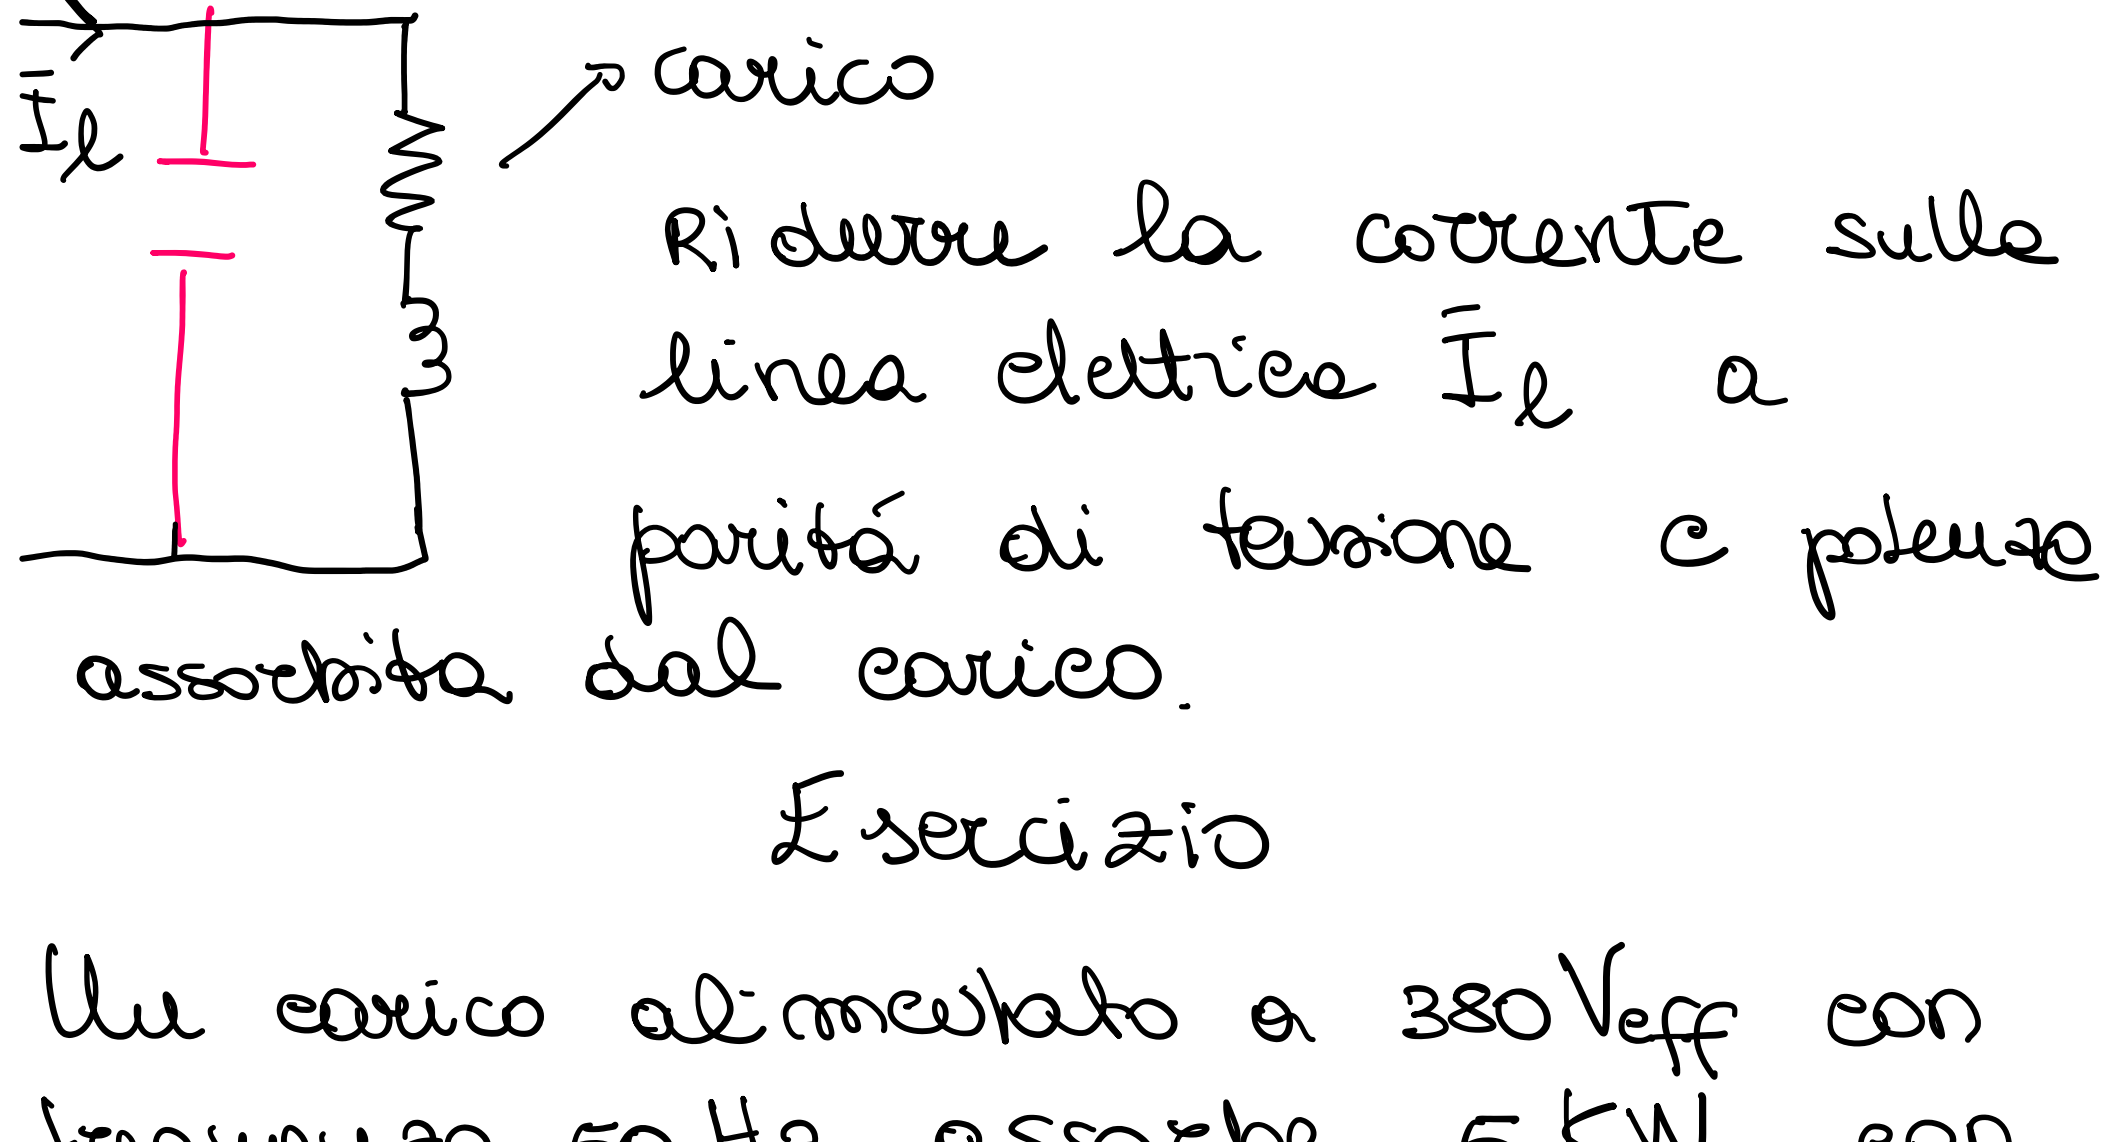 Īl
carico
Ridurre la corrente sulla
linea elettrica Īl a
parità di tensione e potenza
assorbita dal carico.
Esercizio
Un carico alimentato a 380Veff con
frequenza 50 Hz assorbe 5 kW con